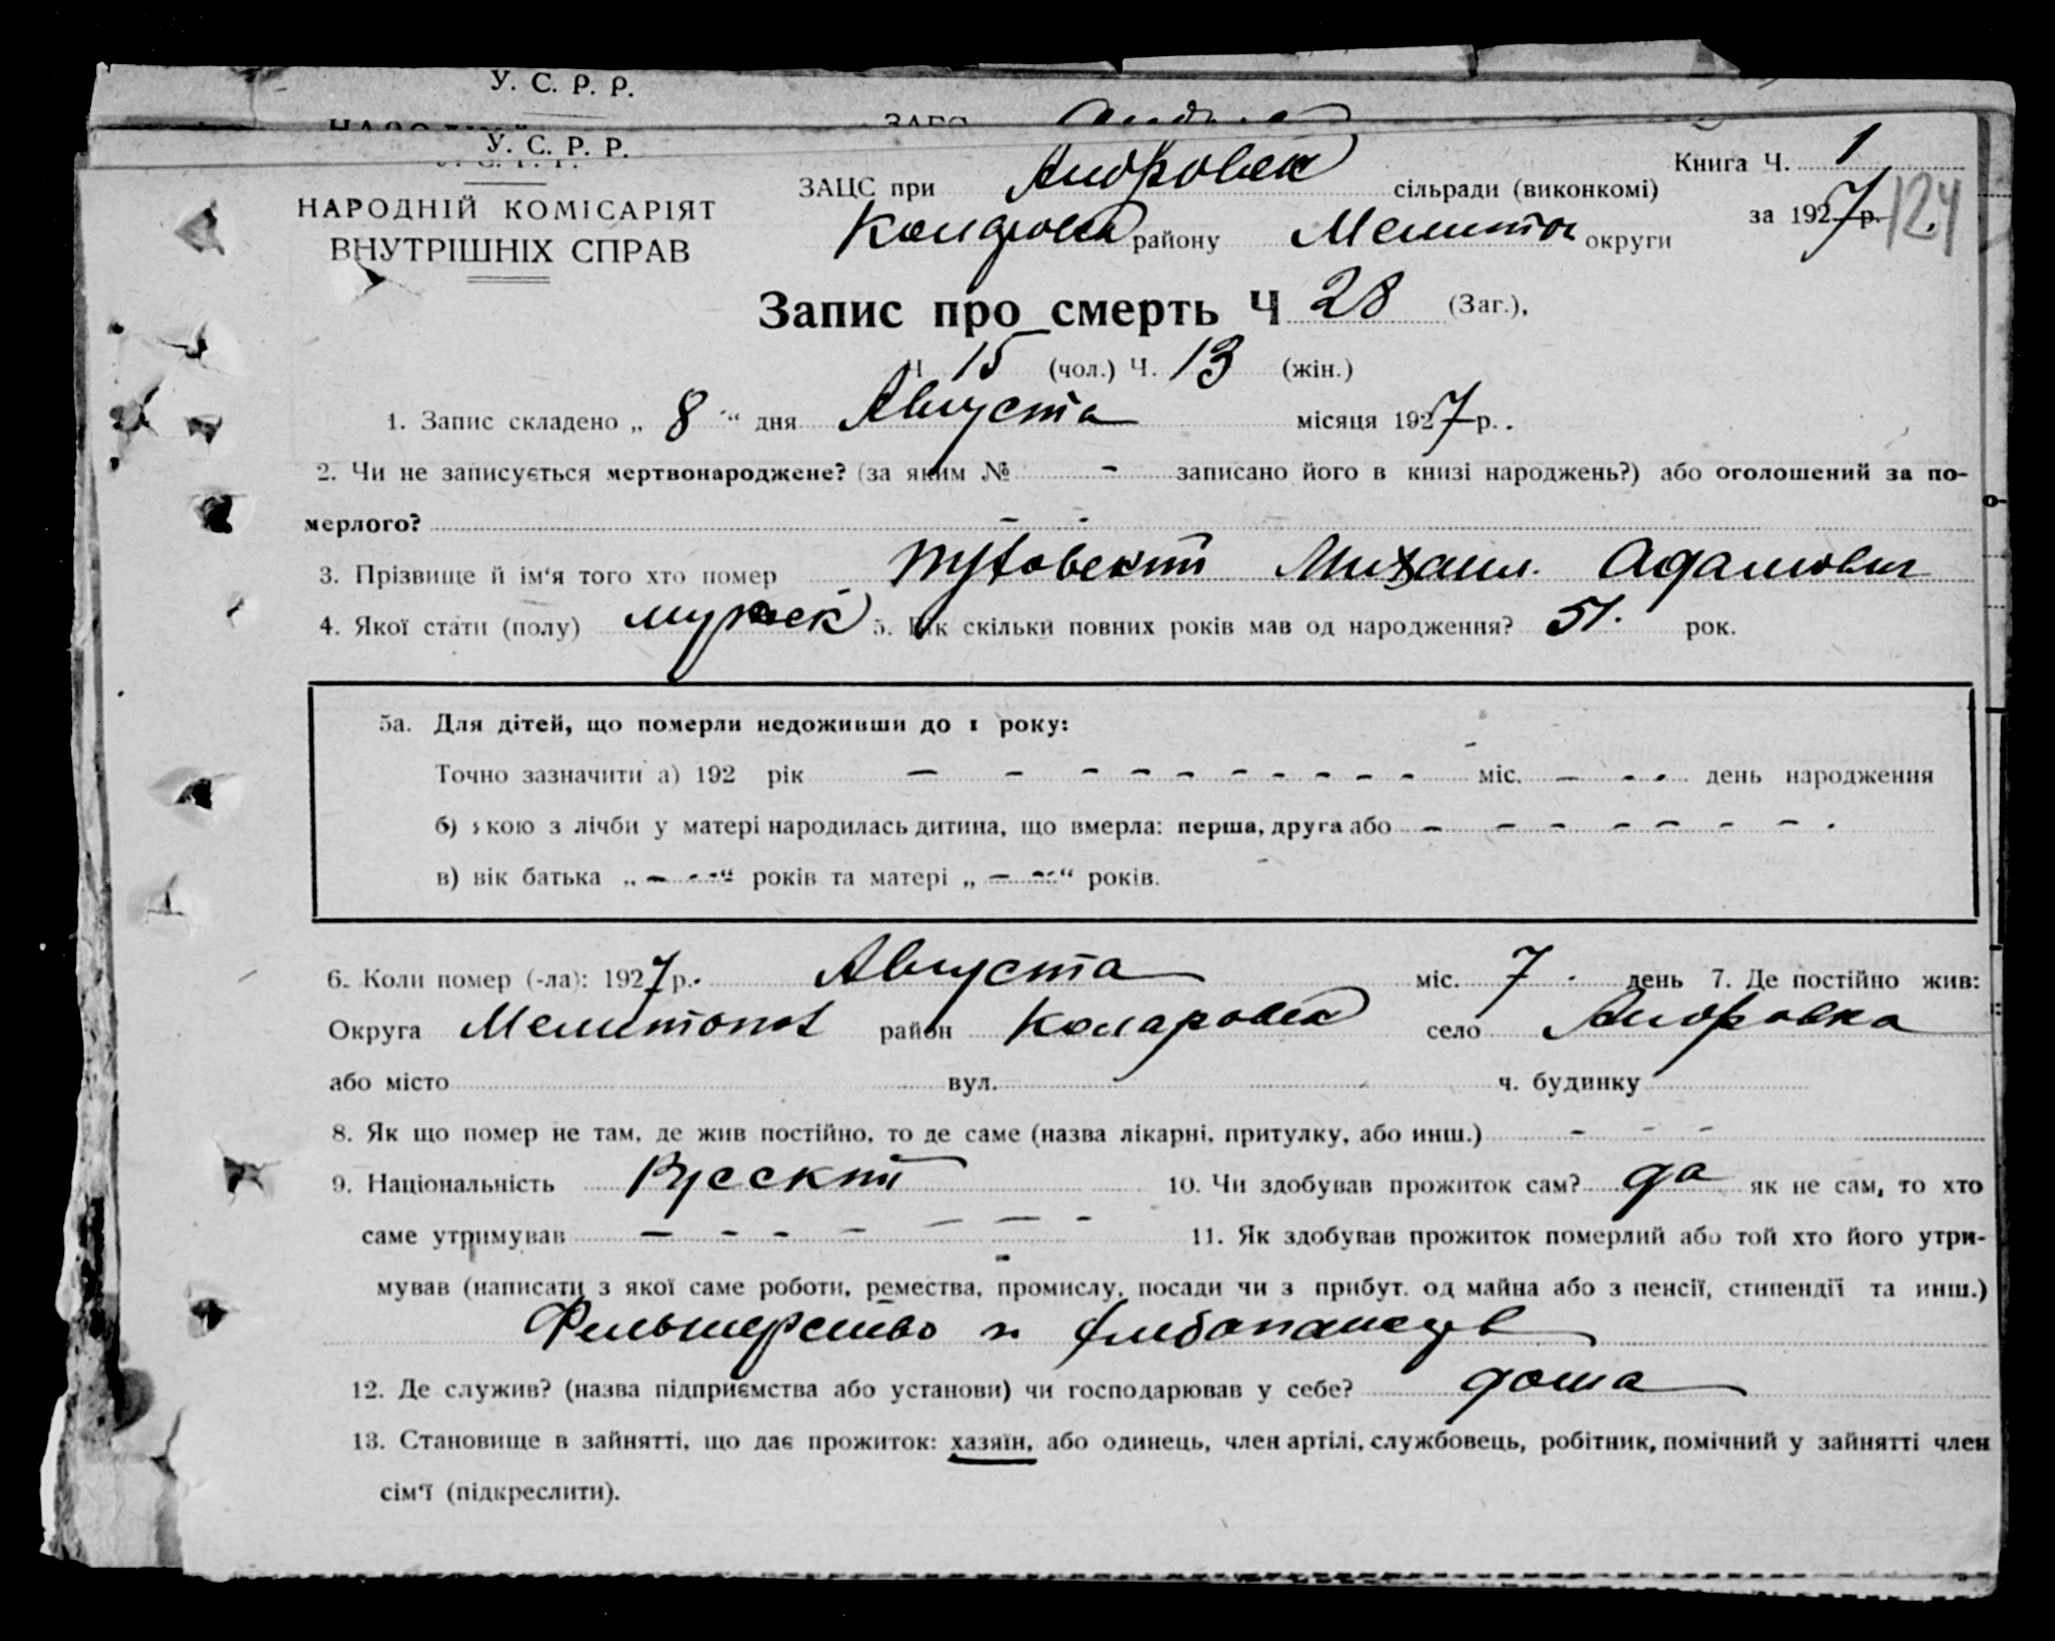 У. С. Р. Р.
У. С. Р. Р.
Книга Ч. 1
ЗАЦС при Андровск сільради (виконкомі)
НАРОДНІЙ КОМІСАРІЯТ
за 1927 р. 124
району Мелитоп округи
ВНУТРІШНІХ СПРАВ
Запис про смерть Ч 28 (Заг.),
Ч 15 (чол.) Ч. 13 (жін.)
1. Запис складено „ 8 “ дня Августа місяця 1927 р.
2. Чи не записується мертвонароджене? (за яким № - записано його в книзі народжень?) або оголошений за по-
мерлого? - -
3. Прізвище й ім'я того хто помер Михаил Адамович
4. Якої стати (полу) мужск 5. Вік скільки повних років мав од народження? 51. рок.
5а. Для дітей, що померли недоживши до 1 року:
Точно зазначити а) 192 рік - - - - - - - - - - міс. - - - день народження
б) якою з лічби у матері народилась дитина, що вмерла: перша, друга або - - - - - - - -
в) вік батька „ - - - “ років та матері „ - - “ років.
6. Коли помер (-ла): 1927 р. Августа міс. 7 день 7. Де постійно жив:
Округа Мелитопол район Коларовск село Андровка
або місто вул. ч. будинку
8. Як що помер не там, де жив постійно, то де саме (назва лікарні, притулку, або инш.) - - -
9. Національність Русский 10. Чи здобував прожиток сам? да як не сам, то хто
саме утримував - - - - - - - 11. Як здобував прожиток померлий або той хто його утри-
мував (написати з якої саме роботи, ремества, промислу, посади чи з прибут. од майна або з пенсії, стипендії та инш.)
Фельшерство и хлебопашедв
12. Де служив? (назва підприємства або установи) чи господарював у себе? дома
13. Становище в зайнятті, що дає прожиток: хазяїн, або одинець, член артілі, службовець, робітник, помічний у зайнятті член
сім'ї (підкреслити).